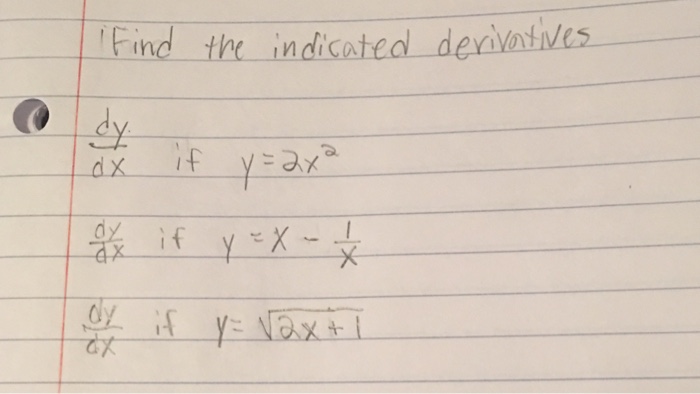 Find the indicated derivatives
dy/dx if y=2x²
dy/dx if y=x - 1/x
dy/dx if y= √(2x+1)